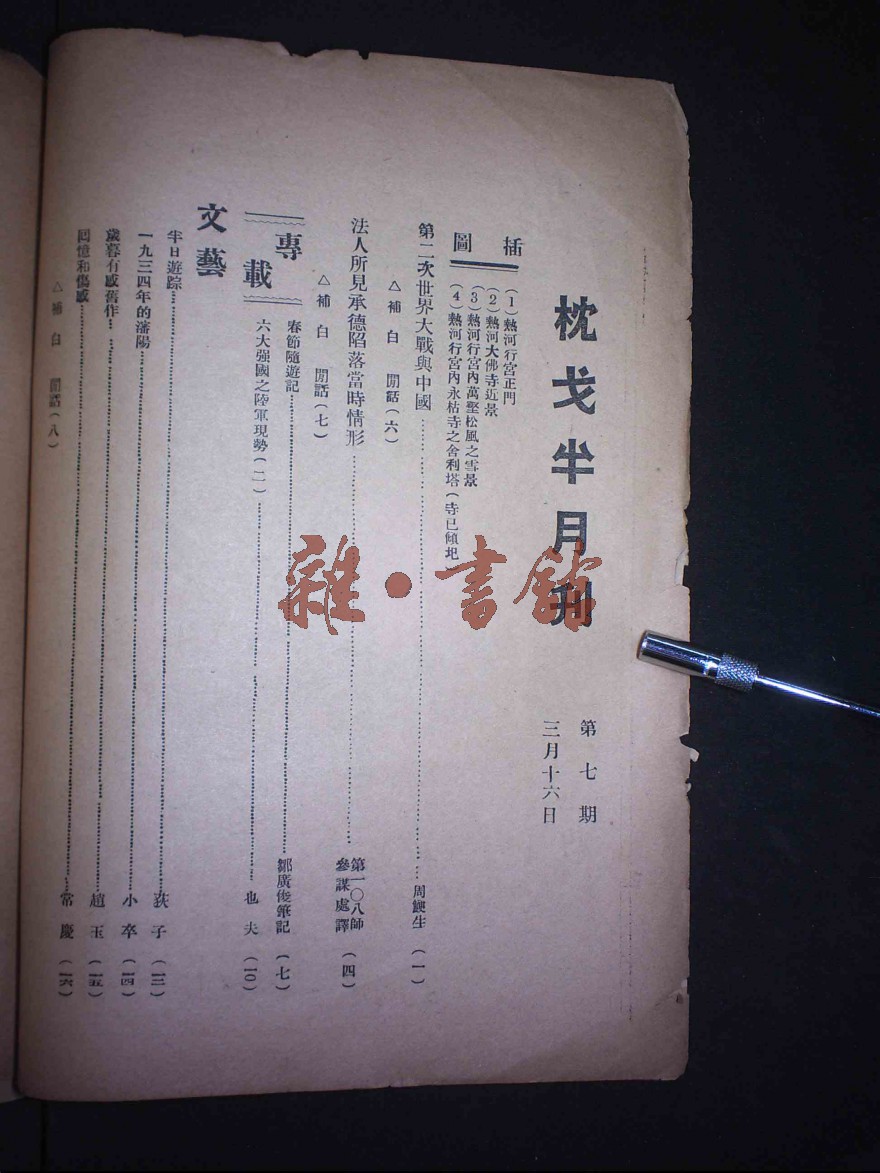 枕戈半月刊
第七期
三月十六日
插圖
(1)熱河行宮正門
(2)熱河大佛寺近景
(3)熱河行宮內萬壑松風之雪景
(4)熱河行宮內永祜寺之舍利塔(寺已傾圯)
第二次世界大戰與中國……周鯁生(一)
△補白 閒話(六)
法人所見承德陷落當時情形……第一〇八師參謀處譯(四)
△補白 閒話(七)
專載
春節隨遊記……鄒廣俊筆記(七)
六大强國之陸軍現勢(二)……也夫(一〇)
文藝
半日遊踪……荻子(一三)
一九三四年的瀋陽……小卒(一四)
歲暮有感舊作……趙玉(一五)
回憶和傷感……常慶(一六)
△補白 閒話(八)
雜·書館